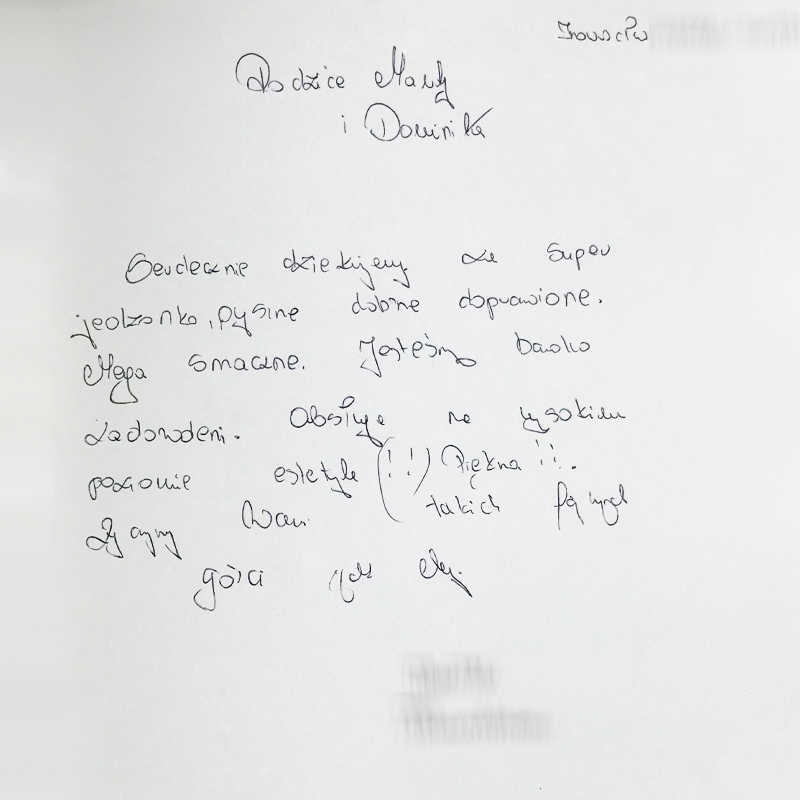 Rodzice Marty
i Dominika
Serdecznie dziękujemy za super
jedzonko, pyszne dobrze doprawione.
Mega smaczne. Jesteśmy bardzo
zadowoleni. Obsługa na wysokim
poziomie estetyka (!!) Piękna !!.
Życzymy Wam takich
gości